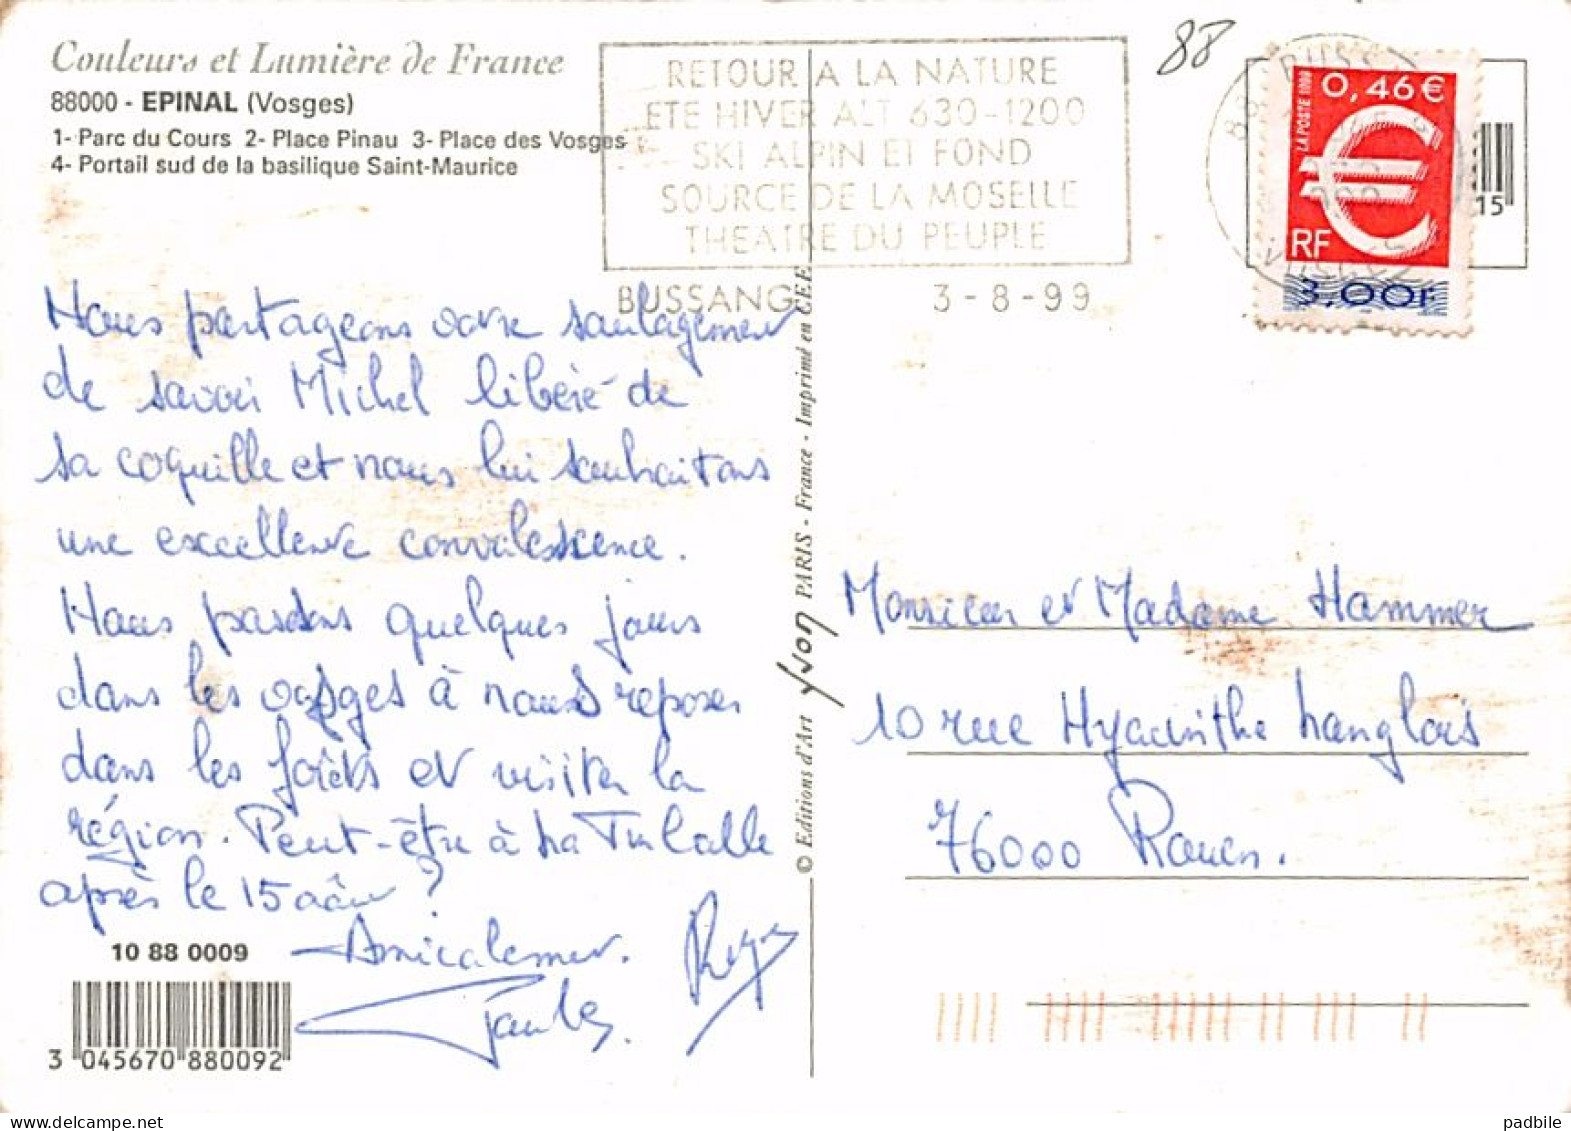 Couleurs et Lumière de France
88000 - EPINAL (Vosges)
1- Parc du Cours 2- Place Pinau 3- Place des Vosges
4- Portail sud de la basilique Saint-Maurice
RETOUR A LA NATURE
ETE HIVER ALT 630-1200
SKI ALPIN ET FOND
SOURCE DE LA MOSELLE
THEATRE DU PEUPLE
BUSSANG 3-8-99
88
0,46 €
LA POSTE 1999
RF
3,00F
15
Nous partageons votre soulagement
de savoir Michel libéré de
sa coquille et nous lui souhaitons
une excellente convalescence.
Nous passons quelques jours
dans les vosges à nous reposer
dans les forêts et visiter la
région. Peut-être à La
après le 15 août ?
Amicalement.
© Editions d'Art Yvon PARIS - France - Imprimé en CEE
Monsieur et Madame Hammer
10 rue Hyacinthe Langlois
76000 Rouen.
10 88 0009
3 045670 880092
padbile